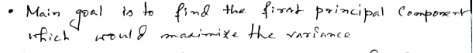 • Main goal is to find the first principal Component
which would maximize the variance